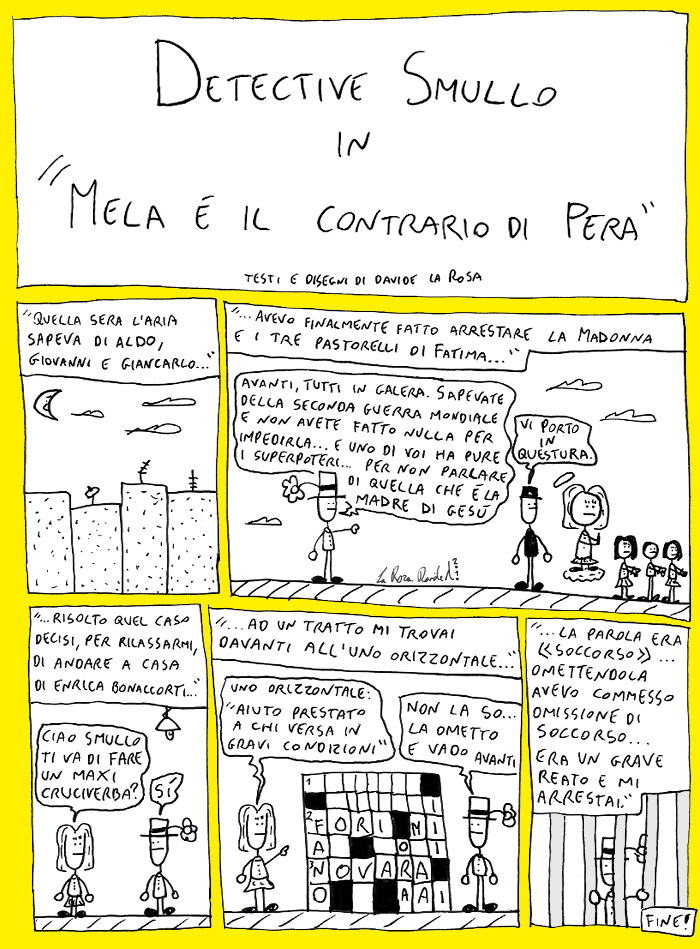 DETECTIVE SMULLO
IN
"MELA É IL CONTRARIO DI PERA"
TESTI E DISEGNI DI DAVIDE LA ROSA
"QUELLA SERA L'ARIA
SAPEVA DI ALDO,
GIOVANNI E GIANCARLO..."
"...AVEVO FINALMENTE FATTO ARRESTARE LA MADONNA
E I TRE PASTORELLI DI FATIMA..."
AVANTI, TUTTI IN GALERA. SAPEVATE
DELLA SECONDA GUERRA MONDIALE
E NON AVETE FATTO NULLA PER
IMPEDIRLA... E UNO DI VOI HA PURE
I SUPERPOTERI... PER NON PARLARE
DI QUELLA CHE É LA
MADRE DI GESÙ
VI PORTO
IN
QUESTURA.
"...RISOLTO QUEL CASO
DECISI, PER RILASSARMI,
DI ANDARE A CASA
DI ENRICA BONACCORTI..."
CIAO SMULLO
TI VA DI FARE
UN MAXI
CRUCIVERBA?
SÌ
"...AD UN TRATTO MI TROVAI
DAVANTI ALL'UNO ORIZZONTALE..."
UNO ORIZZONTALE:
"AIUTO PRESTATO
A CHI VERSA IN
GRAVI CONDIZIONI"
NON LA SO...
LA OMETTO
E VADO AVANTI
1
I
2
FORI MI
A O I
3
NOVARA
O AAI
"...LA PAROLA ERA
«SOCCORSO»...
OMETTENDOLA
AVEVO COMMESSO
OMISSIONE DI
SOCCORSO...
ERA UN GRAVE
REATO E MI
ARRESTAI."
FINE!